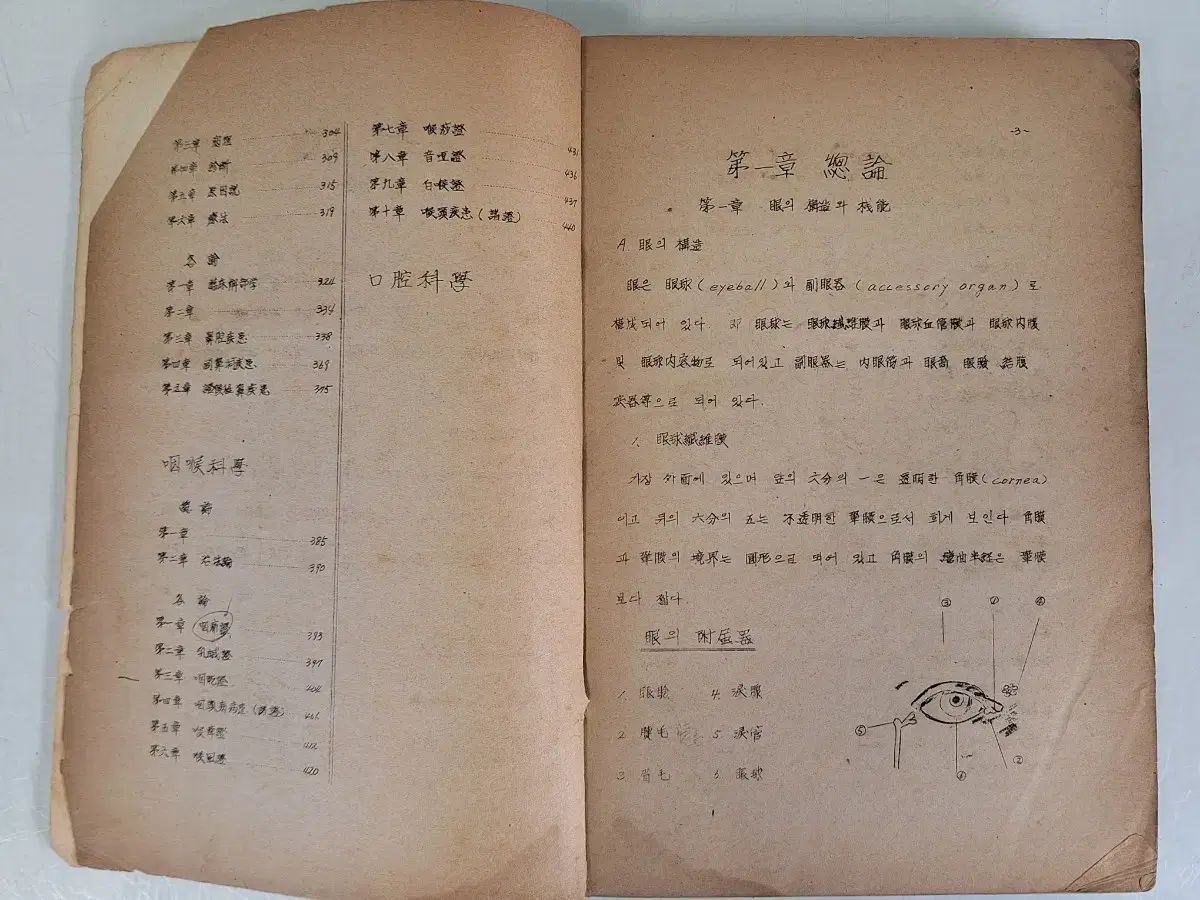 第三章 304
第四章 診斷 309
第五章 原因說 315
第六章 療法 319
各論
第一章 324
第二章 334
第三章 鼻腔疾患 338
第四章 369
第五章 375
咽喉科學
總論
第一章 385
第二章 390
各論
第一章 393
第二章 乳蛾證 397
第三章 咽乾證 404
第四章
第五章
第六章 喉風證 420
第七章 喉痧證 431
第八章 音瘂證 436
第九章 白喉證 437
第十章 喉頭疾患(諸證) 440
口腔科學
-3-
第一章 總論
第一章 眼의 構造와 机能
A. 眼의 構造
眼은 眼球(eyeball)와 副眼器(accessory organ)로
構成되어 있다. 即 眼球는 眼球纖維膜과 眼球血管膜과 眼球内膜
및 眼球内容物로 되어있고 副眼器는 内眼筋과 眼窩 眼瞼 結膜
淚器等으로 되어 있다.
1. 眼球纖維膜
가장 外面에 있으며 앞의 六分의 一은 透明한 角膜(cornea)
이고 뒤의 六分의 五는 不透明한 鞏膜으로서 희게 보인다 角膜
과 鞏膜의 境界는 圓形으로 되어 있고 角膜의 彎曲半経은 鞏膜
보다 짧다.
眼의 附属器
1. 眼瞼 4. 淚腺
2. 睫毛 5. 淚管
3. 眉毛 眼球
③ ④
⑤
②